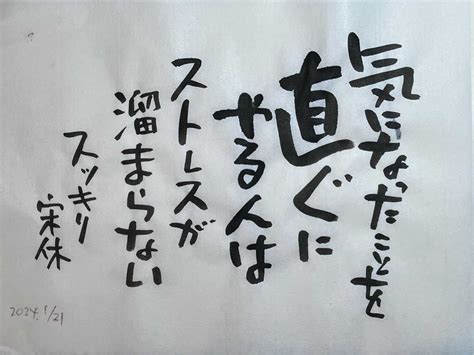 気になったことを
直ぐに
やる人は
ストレスが
溜まらない
スッキリ
宋休
2024.1/21